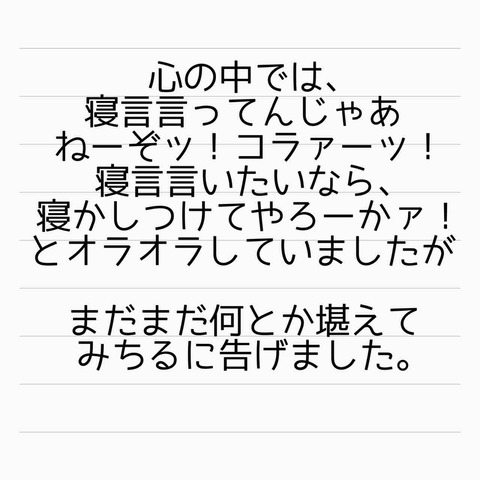 心の中では、
寝言言ってんじゃあ
ねーぞッ!コラァーッ!
寝言言いたいなら、
寝かしつけてやろーかァ!
とオラオラしていましたが
まだまだ何とか堪えて
みちるに告げました。